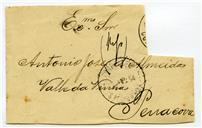 Exmo Snr
Antonio José de Almeida
Valle da Vinha
Penacova